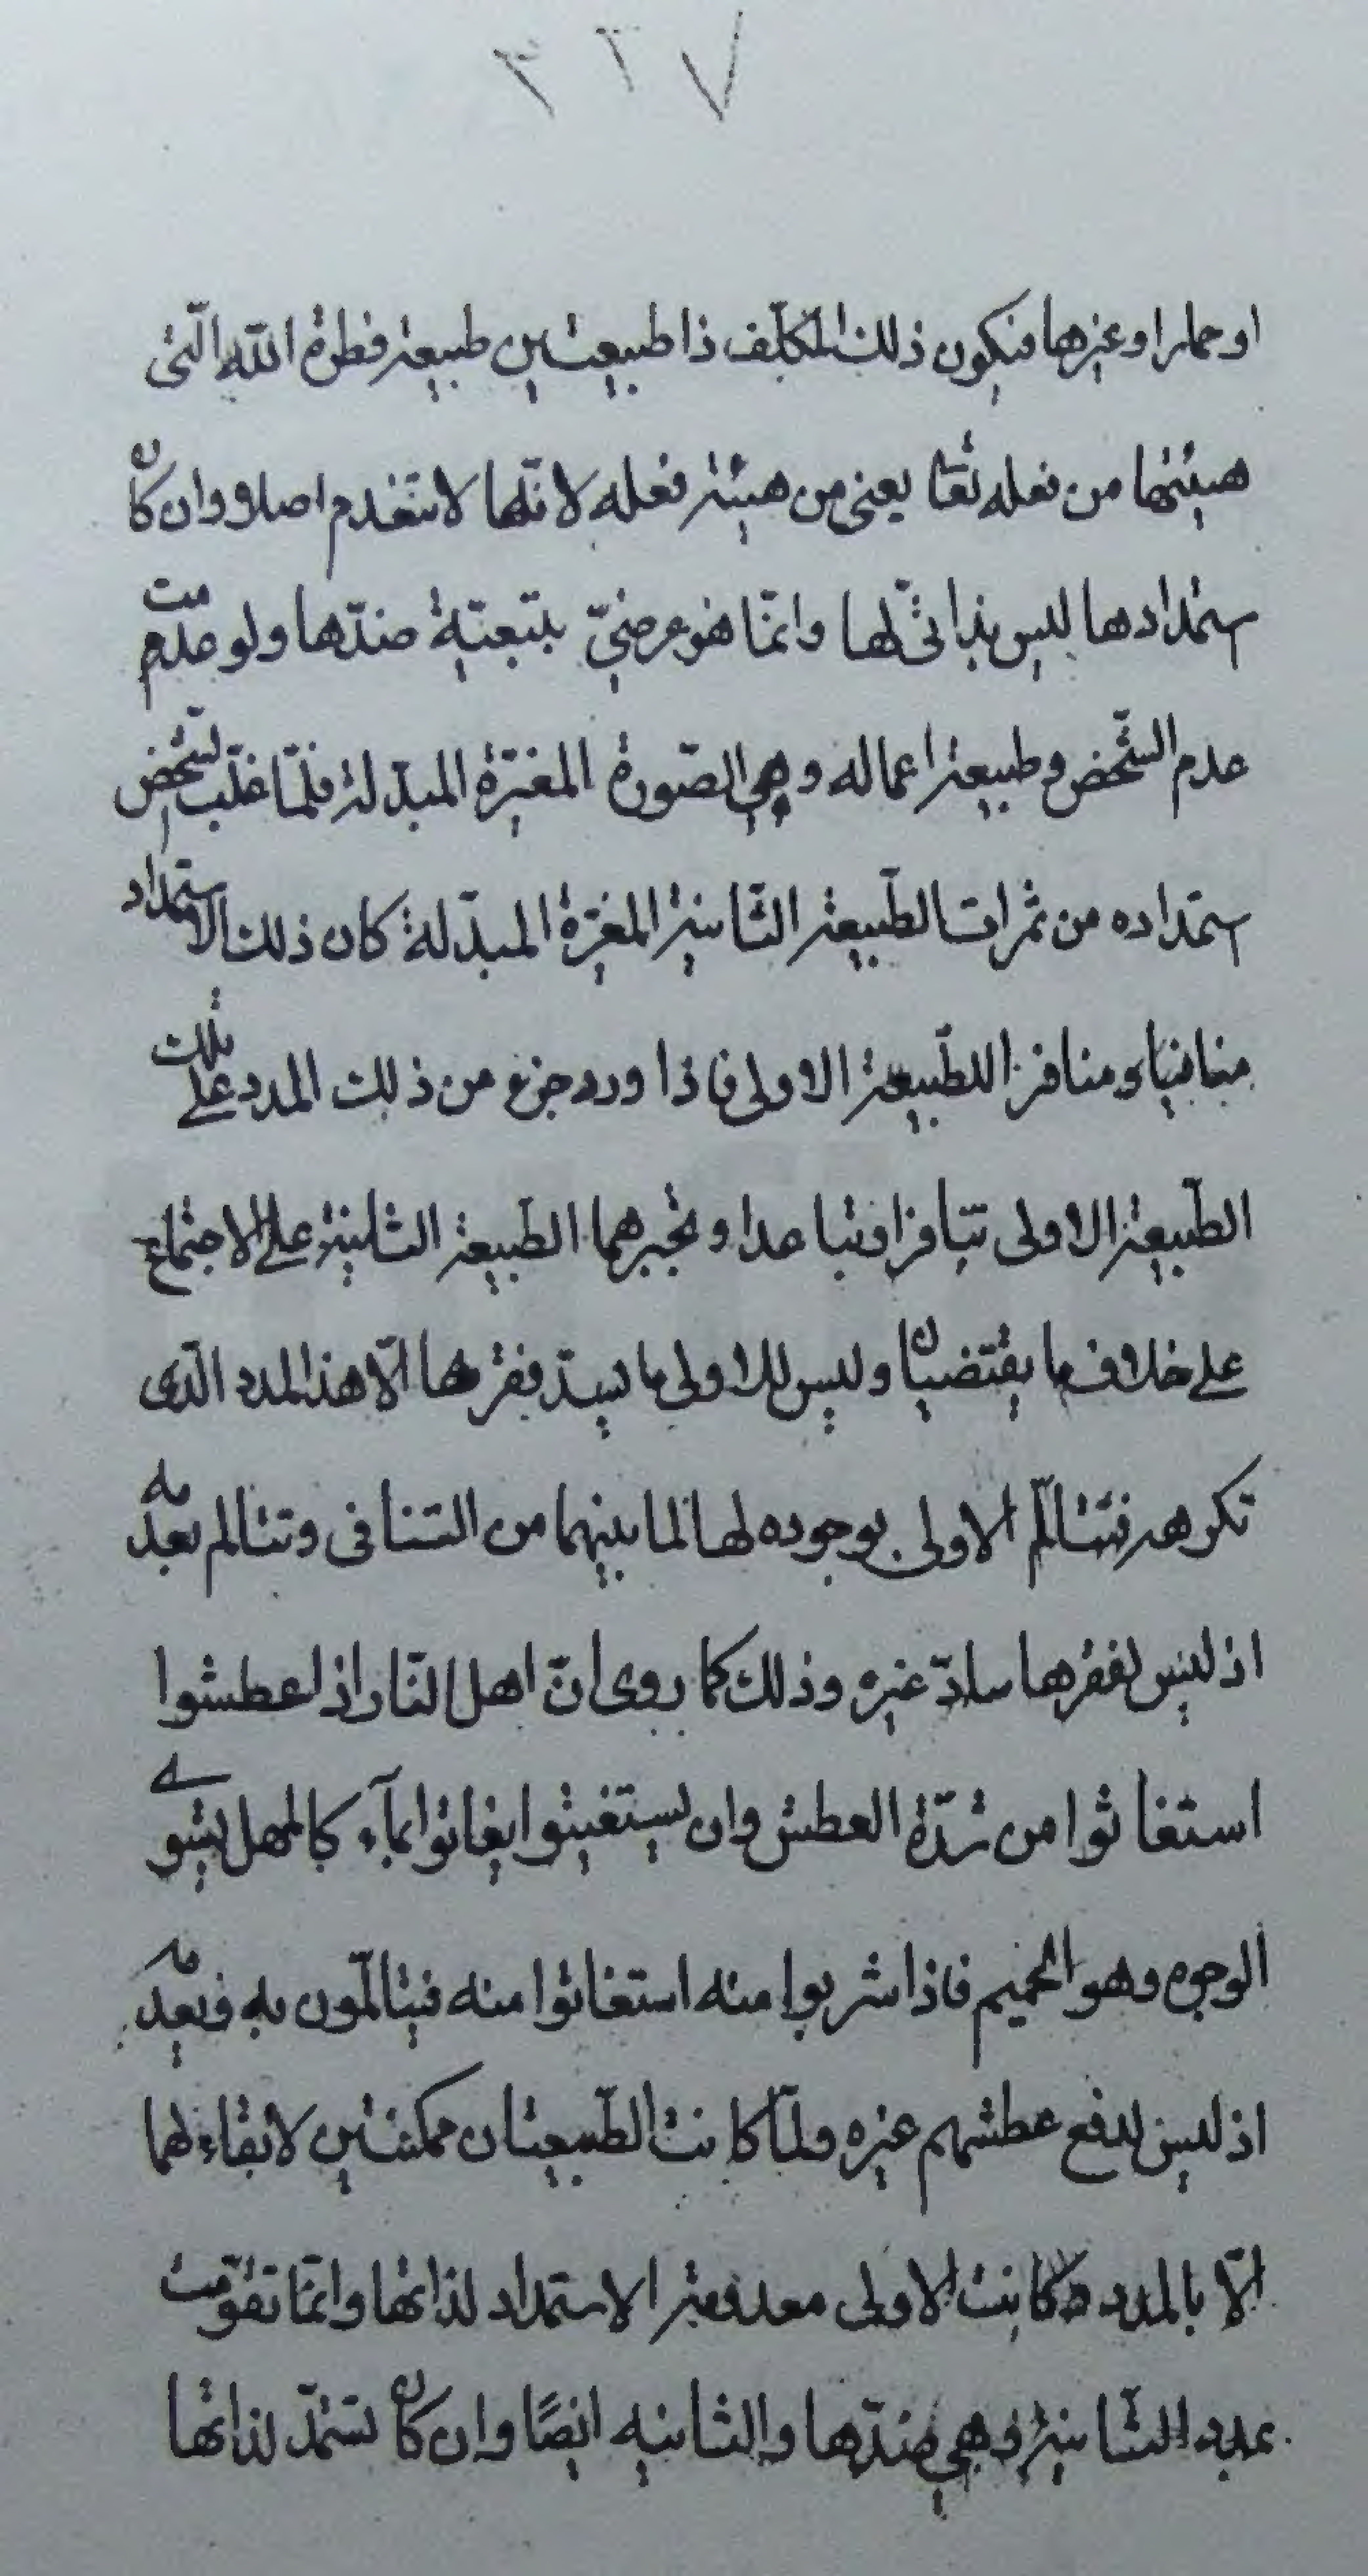 ٣٢٧
او حمارا وغيرها فيكون ذلك المكلّف ذا طبيعتين طبيعة فطرة الله الّتى
هيئتها من فعله تعا يعنى من هيئة فعله لانّها لا تنعدم اصلا وان كان
استمدادها ليس بذاتىّ لها وانّما هو عرضىّ بتبعيّة ضدّها ولو عدمت
عدم الشّخص وطبيعة اعماله وهي الصّورة المغيّرة المبدّلة فلمّا غلّب الشّخص
استمداده من ثمرات الطّبيعة الثّانية المغيّرة المبدّلة كان ذلك الاستمداد
منافيا ومنافرا للطّبيعة الاولى فاذا ورد جزء من ذلك المدد على تلك
الطّبيعة الاولى تنافرا وتباعدا وتجبرهما الطّبيعة الثانية على الاجتماع
على خلاف ما يقتضيان وليس للاولى ما يسدّ فقرها الّا هذا المدد الّذى
تكرهه فتتالّم الاولى بوجوده لها لما بينهما من التنافى وتتالم بعدمه
اذ ليس لفقرها سادّ غيره وذلك كما روى انّ اهل النّار اذا عطشوا
استغاثوا من شدّة العطش وان يستغيثوا يغاثوا بمآء كالمهل يشوي
الوجوه وهو الحميم فاذا شربوا منه استغاثوا منه فيتالّمون به وبعدمه
اذ ليس لدفع عطشهم غيره ولمّا كانت الطّبيعتان ممكنتين لا بقاء لهما
الّا بالمدد وكانت الاولى معدومة الاستمداد لذاتها وانّما تقوّمت
بمدد الثّانية وهي ضدّها والثانيه ايضًا وان كان تستمدّ لذاتها